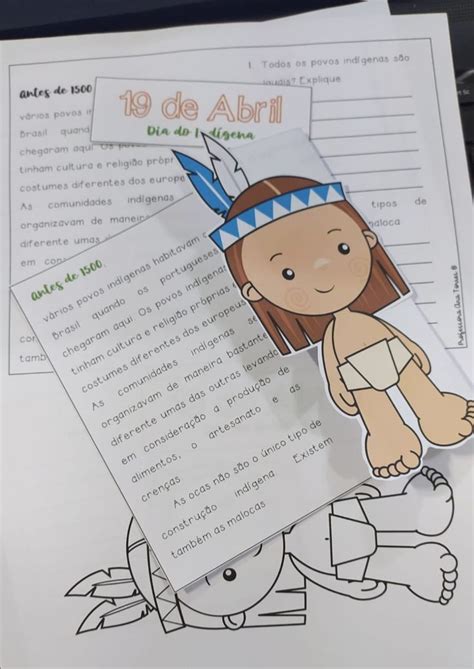 Antes de 1500
vários povos
Brasil
chegaram aqui Os
tinham cultura e religião
costumes diferentes dos
As comunidades indígenas
organizavam de
diferente umas
em
1. Todos os povos indígenas são
iguais? Explique
tipos de
maloca
Professora Ana Torres
19 de Abril
Dia do Indígena
Antes de 1500,
vários povos indígenas habitavam
Brasil quando os portugueses
chegaram aqui Os povos indígenas
tinham cultura e religião próprias e
costumes diferentes dos europeus
As comunidades indígenas se
organizavam de maneira bastante
diferente umas das outras levando
em consideração a produção de
alimentos, o artesanato e as
crenças
As ocas não são o único tipo de
construção indígena Existem
também as malocas